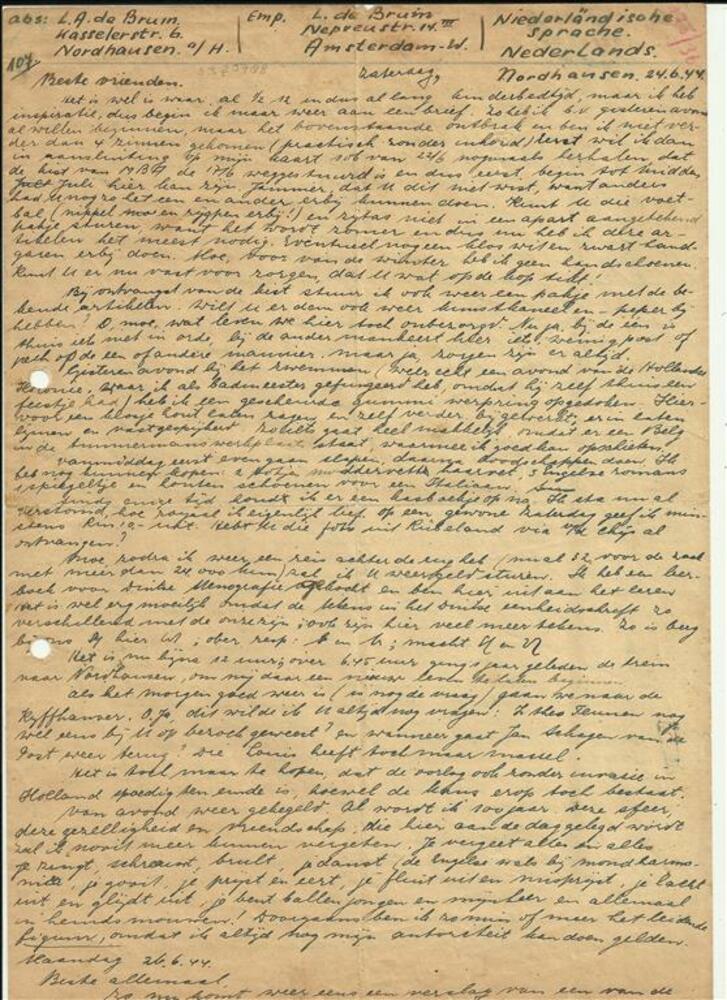 abs: L.A. de Bruin.
Kasselerstr. 6.
Nordhausen. a/H.
Emp. L. de Bruin
Nepveustr. 14 III
Amsterdam-W.
Niederländische
Sprache.
Nederlands.
107.
Beste vrienden.
Zaterdag, Nordhausen, 24.6.44.
Het is wel is waar, al ½ 12 en dus al lang kinderbedtijd, maar ik heb
inspiratie, dus begin ik maar weer aan een brief. Zo heb ik b.v. gisterenavond
al willen beginnen, maar het bovenstaande ontbrak en ben ik niet ver-
der dan 4 zinnen gekomen (practisch zonder inhoud) Eerst wil ik dan
in aansluiting op mijn kaart van 22/6 nogmaals herhalen, dat
de kist van de 17/6 weggestuurd is en dus eerst begin tot midden
Juli hier kan zijn. Jammer, dat U dit niet wist, want anders
had U nog zo het een en ander erbij kunnen doen. Kunt U die voet-
bal, (nippel en erbij!) en zijtas niet in een apart aangetekend
pakje sturen, want het wordt zomer en dus nu heb ik deze ar-
tikelen het meest nodig. Eventueel nog een klos wit en zwart hand-
garen erbij doen. Moe, voor van de winter heb ik geen handschoenen.
Kunt U er nu vast voor zorgen, dat U wat op de kop tikt!
Bij ontvangst van de kist stuur ik ook weer een pakje met de be-
kende artikelen. Wilt U er dan ook weer kunstkaneel en -peper bij
hebben? O, moe, wat leven we hier toch onbezorgd! Nu ja, bij de een is
thuis iets niet in orde, bij de ander mankeert hier iets, weinig post of
pech op de een of andere manier, maar ja, zorgen zijn er altijd.
Gisteren avond bij het zwemmen (weer echt een avond van de Hollandse
, waar ik als badmeester gefungeerd heb, omdat hij zelf thuis een
feestje had) heb ik een gescheurde gummi werpring opgedoken. Hier-
voor een blosje hout laten zagen en zelf verder bijgewerkt, erin laten
lijmen en vastgespijkerd. Zoiets gaat heel makkelijk omdat er een Belg
in de timmermanswerkplaats staat, waarmee ik goed kan opschieten.
Vanmiddag eerst even gaan slapen, daarna boodschappen doen. Ik
heb nog kunnen kopen: 2 potjes haarvet, 3 Engelse romans
1 spiegeltje en houten schoenen voor een Italiaan.
Sinds enige tijd houdt ik er een kasboekje op na. Ik sta nu al
verstomd, hoe royaal ik eigenlijk leef. Op een gewone Zaterdag geef ik min-
stens Rm. 10,- uit. Hebt U die foto uit Rübeland via al
ontvangen?
Moe, zodra ik weer een reis achter de rug heb (nu al 32, voor de zaak
met meer dan 24.000 km) zal ik U weer geld sturen. Ik heb een leer-
boek voor Duitse stenografie gekocht en ben hier uit aan het leren
Het is wel erg moeilijk omdat de tekens in het Duitse eenheidsschrift zo
verschillend met de onze zijn; ook zijn hier veel meer tekens. Zo is berg
bij ons hier; ober resp: en; macht en
Het is nu bijna 12 uur; over 6.45 uur ging 1 jaar geleden de trein
naar Nordhausen, om mij daar een nieuw leven te laten beginnen.
Als het morgen goed weer is (is nog de vraag) gaan we naar de
Kyffhäuser. O, ja, dit wilde ik U altijd nog vragen: Is Theo Teunen nog
wel eens bij U op bezoek geweest? En wanneer gaat Jan Schagen van de
Post weer terug? Die Louis heeft toch maar massel.
Het is toch maar te hopen, dat de oorlog ook zonder invasie in
Holland spoedig ten einde is, hoewel de kans erop toch bestaat.
Van avond weer gekegeld. Al wordt ik 100 jaar. Deze sfeer,
deze gezelligheid en vriendschap, die hier aan de dag gelegd wordt
zal ik nooit meer kunnen vergeten. Je vergeet alles en alles
je zingt, schreeuwt, brult, je danst (de Engelse wals bij mondharmo-
nica), je gooit, je prijst en eert, je fluit uit en misprijst, je lacht
uit en glijdt uit, je bent ballenjongen en mijnheer en allemaal
in hemdsmouwen! Doorgaans ben ik zo min of meer het leidende
figuur, omdat ik altijd nog mijn autoriteit kan doen gelden.
Maandag 26.6.44.
Beste allemaal.
Zo nu komt weer eens een verslag van een van de